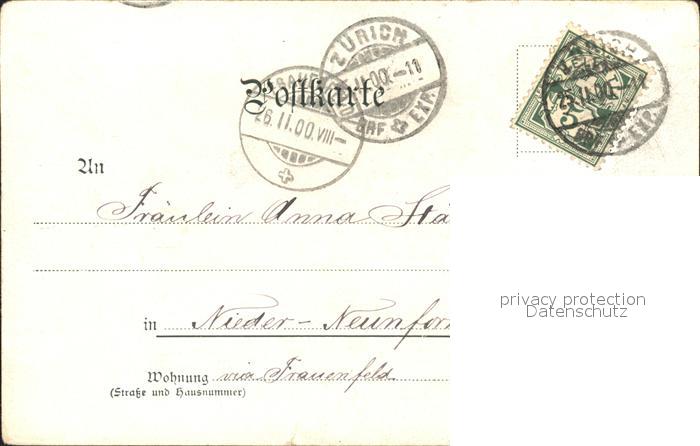 ZÜRICH
.II.00.–10
BRF. EXP.
26.II.00.VIII–
Postkarte
An
Fräulein Anna Stä
in Nieder-Neunfor
Wohnung via Frauenfeld.
(Straße und Hausnummer)
privacy protection
Datenschutz